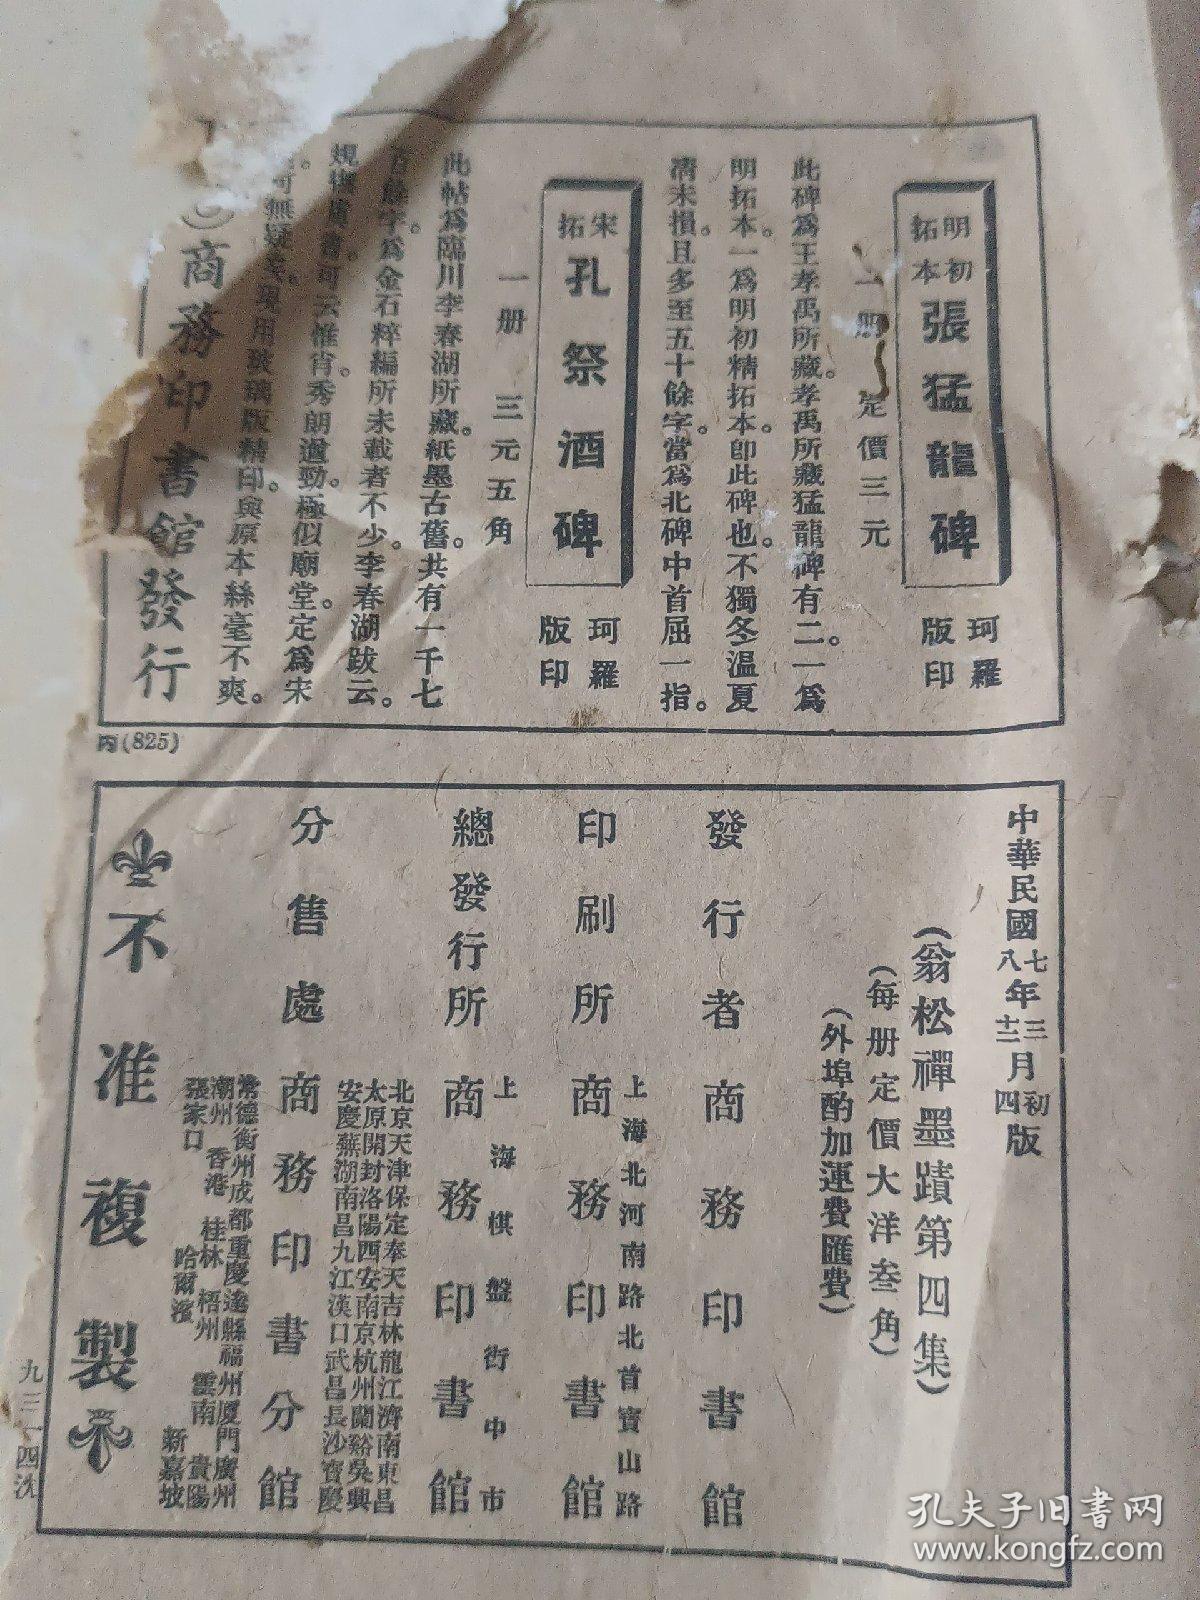 明初
拓本
張猛龍碑
珂羅
版印
一册 定價三元
此碑爲王孝禹所藏。孝禹所藏猛龍碑有二。一爲
明拓本。一爲明初精拓本。卽此碑也。不獨冬溫夏
凊未損。且多至五十餘字。當爲北碑中首屈一指。
宋
拓
孔祭酒碑
珂羅
版印
一册 三元五角
此帖爲臨川李春湖所藏。紙墨古舊。共有一千七
百餘字。爲金石粹編所未載者不少。李春湖跋云。
規橅書可云惟肖。秀朗遒勁。極似廟堂。定爲宋
可無疑。現用玻璃版精印。與原本絲毫不爽。
商務印書館發行
丙(825)
中華民國七年三月初版
八年十二月四版
(翁松禪墨蹟第四集)
(每册定價大洋叁角)
(外埠酌加運費匯費)
發行者 商務印書館
上海北河南路北首寶山路
印刷所 商務印書館
上海棋盤街中市
總發行所 商務印書館
北京天津保定奉天吉林龍江濟南東昌
太原開封洛陽西安南京杭州蘭谿吳興
安慶蕪湖南昌九江漢口武昌長沙寶慶
分售處 商務印書分館
常德衡州成都重慶達縣福州厦門廣州
潮州 香港 桂林 梧州 雲南 貴陽
張家口 哈爾濱 新嘉坡
不准複製
九三一四沈
孔夫子旧书网
www.kongfz.com